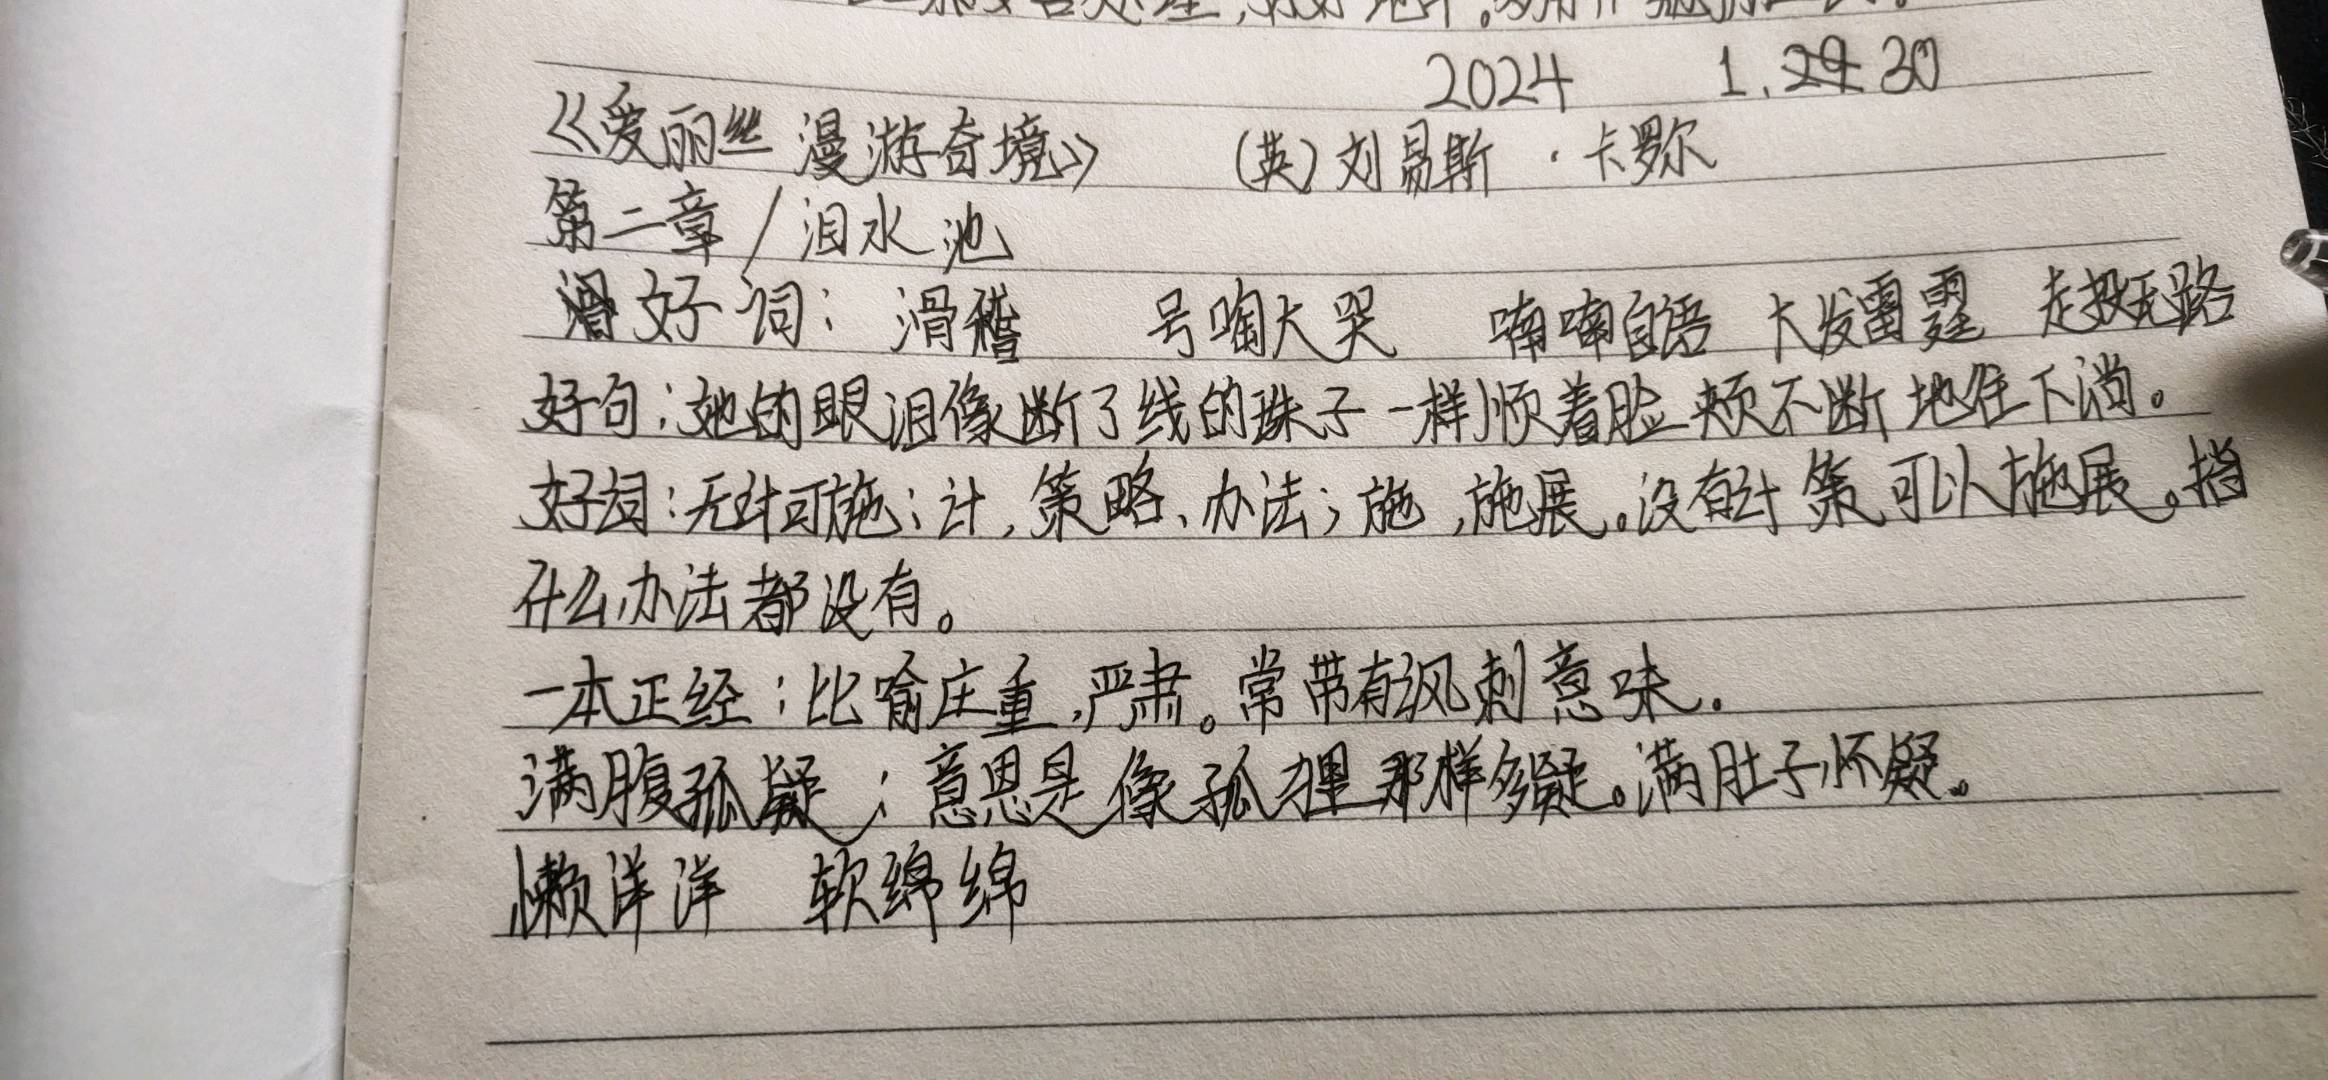 2024 1.29 30
《爱丽丝漫游奇境》 (英)刘易斯·卡罗尔
第二章/泪水池
滑好词：滑稽 号啕大哭 喃喃自语 大发雷霆 走投无路
好句：她的眼泪像断了线的珠子一样顺着脸颊不断地往下淌。
好词：无计可施：计,策略、办法；施,施展。没有计策可以施展。指
什么办法都没有。
一本正经：比喻庄重,严肃。常带有讽刺意味.
满腹孤疑：意思是像孤狸那样多疑。满肚子怀疑。
懒洋洋 软绵绵